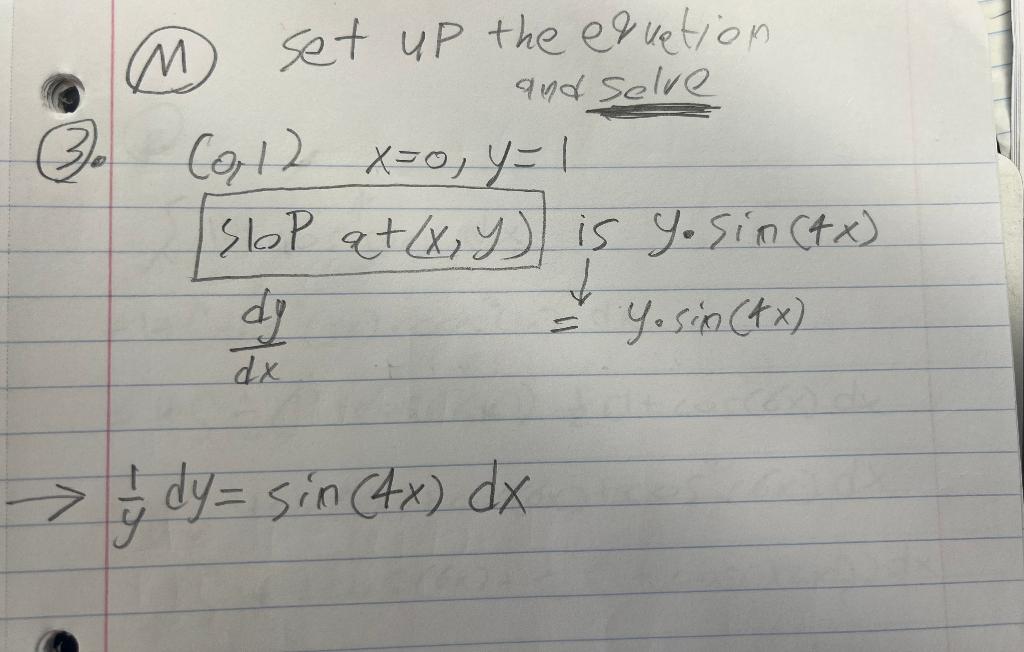 M set up the equation
and solve
3. (0,1) x=0, y=1
slop at (x, y) is y·sin(4x)
↓
dy/dx = y·sin(4x)
→ 1/y dy = sin(4x) dx